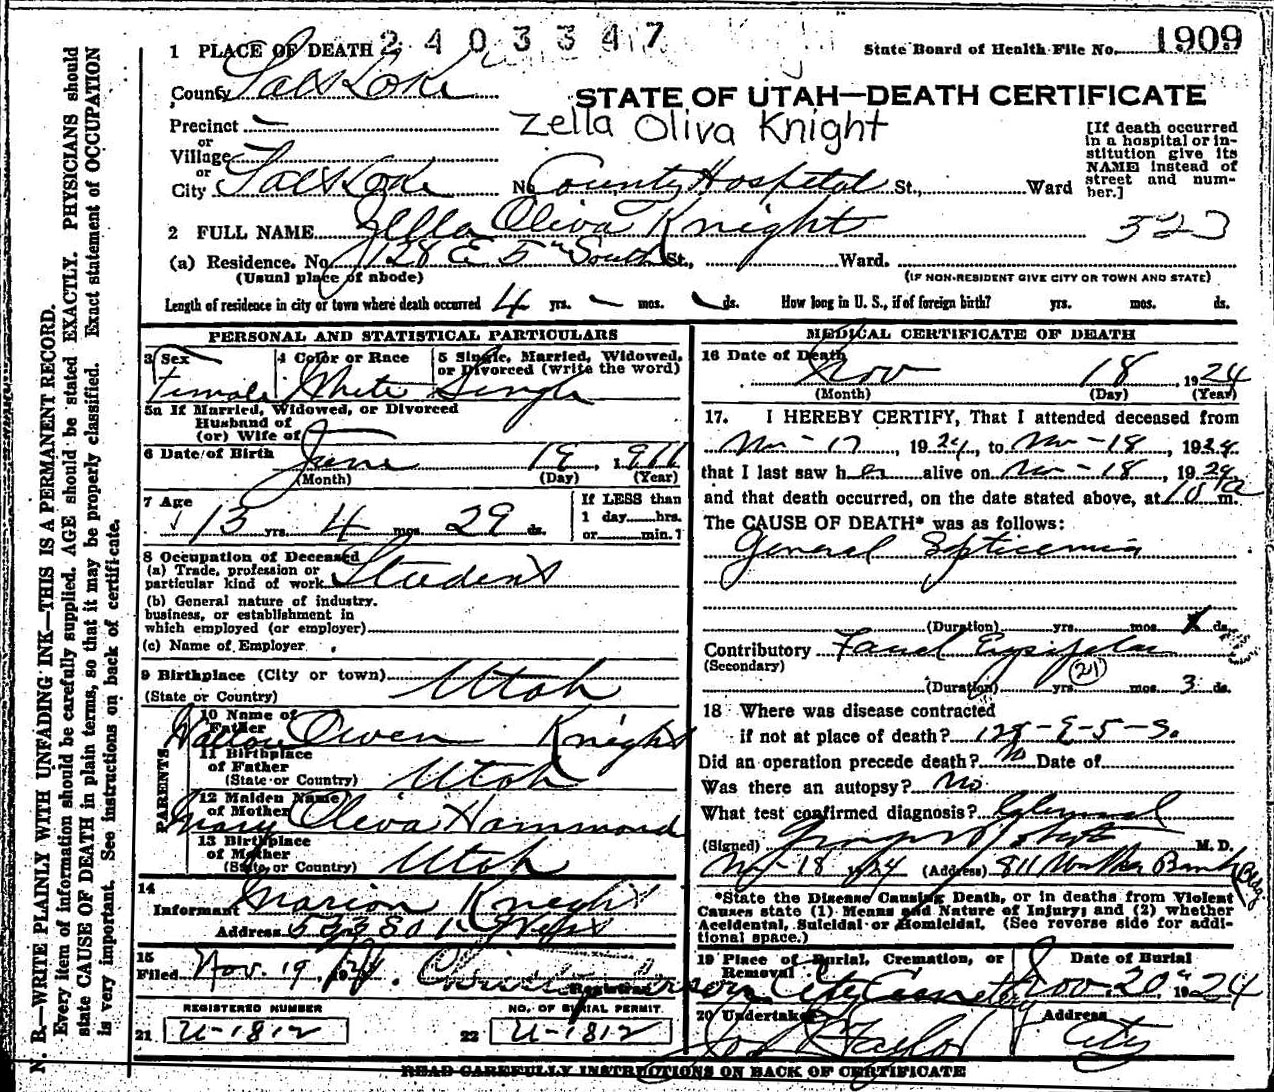 2403347
1 PLACE OF DEATH
State Board of Health File No. 1909
County Salt Lake
STATE OF UTAH—DEATH CERTIFICATE
Zella Oliva Knight
Precinct —
or
Village
or
City Salt Lake No. County Hospital St., Ward
[If death occurred
in a hospital or in-
stitution give its
NAME instead of
street and num-
ber.]
2 FULL NAME Zella Oliva Knight
523
(a) Residence. No. 128 E 5th South St., Ward.
(Usual place of abode)
(IF NON-RESIDENT GIVE CITY OR TOWN AND STATE)
Length of residence in city or town where death occurred 4 yrs. — mos. ds. How long in U. S., if of foreign birth? yrs. mos. ds.
PERSONAL AND STATISTICAL PARTICULARS
3 Sex
Female
4 Color or Race
White
5 Single, Married, Widowed,
or Divorced (write the word)
Single
5a If Married, Widowed, or Divorced
Husband of
(or) Wife of
6 Date of Birth June 19, 1911
(Month) (Day) (Year)
7 Age
13 yrs. 4 mos. 29 ds.
If LESS than
1 day......hrs.
or......min.?
8 Occupation of Deceased
(a) Trade, profession or
particular kind of work Student
(b) General nature of industry.
business, or establishment in
which employed (or employer)
(c) Name of Employer
9 Birthplace (City or town)
(State or Country) Utah
PARENTS
10 Name of
Father Owen Knight
11 Birthplace
of Father
(State or Country) Utah
12 Maiden Name
of Mother Mary Oliva Hammond
13 Birthplace
of Mother
(State or Country) Utah
14
Informant Marion Knight
Address
15
Filed Nov. 19, 1924.
Registrar
REGISTERED NUMBER
21 U-1812
NO. OF BURIAL PERMIT
22 U-1812
MEDICAL CERTIFICATE OF DEATH
16 Date of Death
Nov 18, 1924
(Month) (Day) (Year)
17. I HEREBY CERTIFY, That I attended deceased from
Nov-17, 1924, to Nov-18, 1924.
that I last saw her alive on Nov-18, 1924
and that death occurred, on the date stated above, at 10 a m.
The CAUSE OF DEATH* was as follows:
General Septicemia
(Duration) yrs. mos. ds.
Contributory Facial Erysipelas
(Secondary)
(21)
(Duration) yrs. mos. 3 ds.
18 Where was disease contracted
if not at place of death? 128-E-5-S.
Did an operation precede death? No Date of
Was there an autopsy? No
What test confirmed diagnosis?
(Signed) M. D.
Nov-18 1924 (Address) 811 Walker Bank Bldg
*State the Disease Causing Death, or in deaths from Violent
Causes state (1) Means and Nature of Injury; and (2) whether
Accidental, Suicidal or Homicidal. (See reverse side for addi-
tional space.)
19 Place of Burial, Cremation, or
Removal City Cemetery
Date of Burial
Nov. 20 1924
20 Undertaker
Jos Taylor
Address
City
READ CAREFULLY INSTRUCTIONS ON BACK OF CERTIFICATE
N. B.—WRITE PLAINLY WITH UNFADING INK—THIS IS A PERMANENT RECORD.
Every item of information should be carefully supplied. AGE should be stated EXACTLY. PHYSICIANS should
state CAUSE OF DEATH in plain terms, so that it may be properly classified. Exact statement of OCCUPATION
is very important. See instructions on back of certificate.